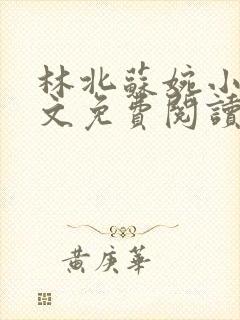 林北蘇婉小
文免費閱讀
黃庚華